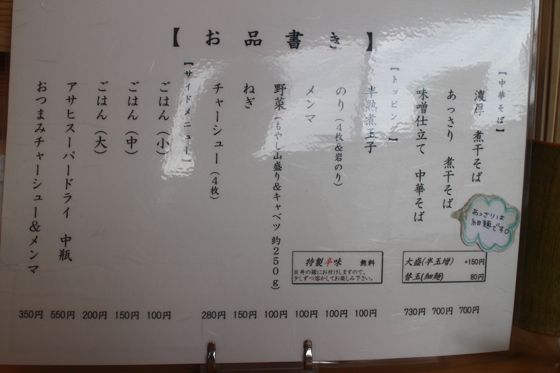 【お品書き】
【中華そば】
濃厚 煮干そば 700円
あっさり 煮干そば 700円
味噌仕立て 中華そば 730円
あっさりは
細麺です。
大盛(半玉増) +150円
替玉(細麺) 80円
【トッピング】
半熟煮玉子 100円
のり(4枚&岩のり) 100円
メンマ 100円
野菜(もやし山盛り&キャベツ 約250g) 100円
ねぎ 150円
チャーシュー(4枚) 280円
特製辛味 無料
※丼の縁にお付けしますので、
少しずつ溶かしてお楽しみ下さい。
【サイドメニュー】
ごはん(小) 100円
ごはん(中) 150円
ごはん(大) 200円
アサヒスーパードライ 中瓶 550円
おつまみチャーシュー&メンマ 350円